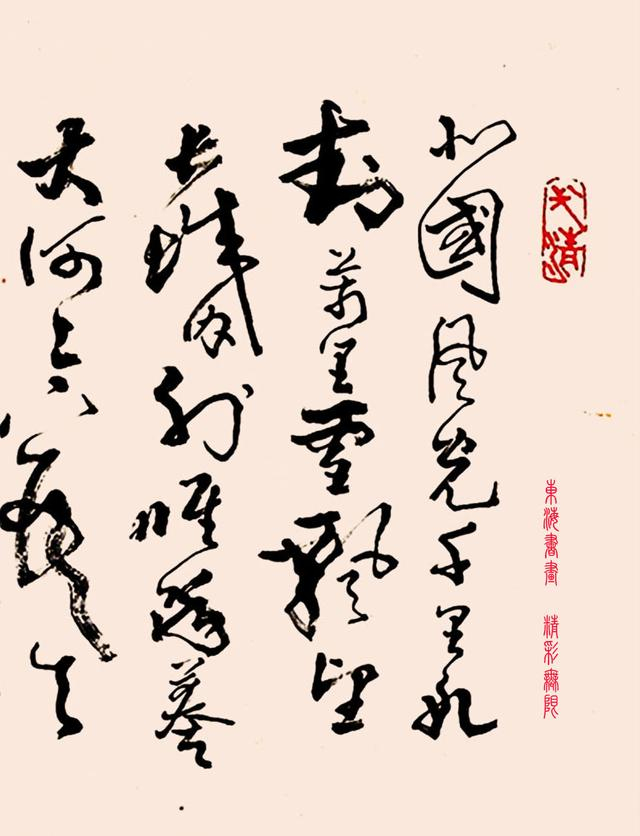 東海書畫 精彩無限
北國風光千里冰
封萬里雪飄望
長城內外惟餘莽
大河上下頓失